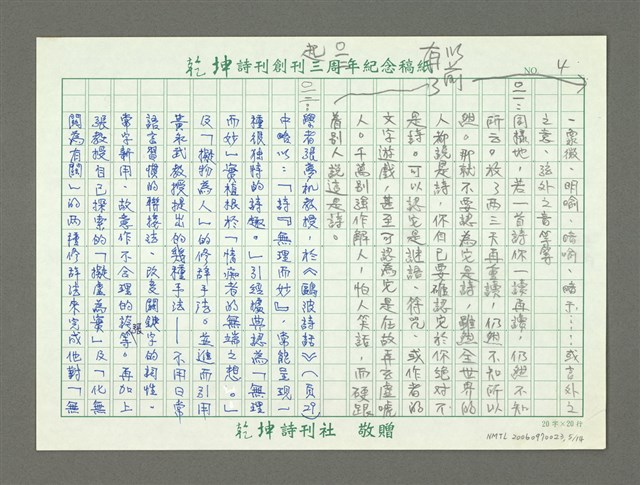 乾坤詩刊創刊三周年紀念稿紙
NO 4
以前有了
起
一象徵、明喻、暗喻、暗示……或言外之
之意、弦外之音等等
同樣地,若一首詩你一讀再讀,仍然不知
所云。放了兩三天再重讀,仍然不知所以
然。那就不要認為它是詩,雖然全世界的
人都說是詩,你自己要確認它於你絕對不
是詩。可以認它是謎語、符咒、或作者的
文字遊戲,甚至可認為它是在故弄玄虛唬
人。千萬別強作解人,怕人笑話,而硬跟
着別人說這是詩。
學者張夢機教授,於《鷗波詩話》(頁29)
中略以:「詩『無理而妙』,常能呈現一
種很獨特的詩趣。」引經據典認為「無理
而妙」實植根於「情痴者的無端之想。」
及「擬物為人」的修辭手法。並進而引用
黃永武教授提出的幾種手法——不用日常
語言習慣的聯接法、改變關鍵字的詞性、
常字新用、故意作不合理的誤置等。再加上
張教授自己探索的「擬虛為實」及「化無
關為有關」的兩種修辭法來完成他對「無
20字×20行
乾坤詩刊社 敬贈
NMTL 20060970023 5/14